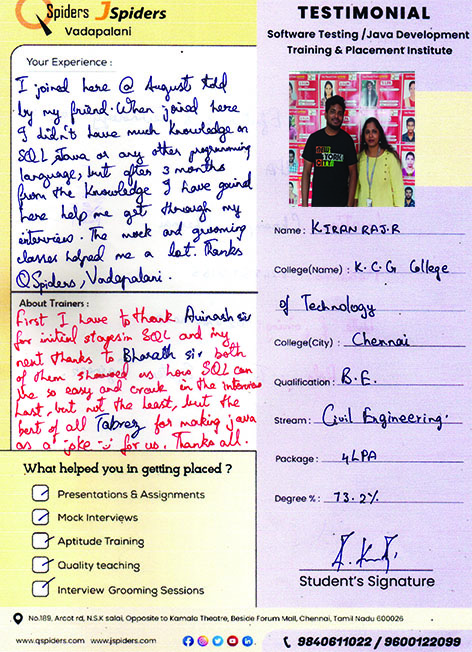 QSpiders JSpiders
Vadapalani
Your Experience :
I joined here @ August told
by my friend. When joined here
I didn't have much knowledge on
SQL, Java or any other programming
language, but after 3 months
from the knowledge I have gaind
here help me get through my
interview. The mock and grooming
classes helped me a lot. Thanks
QSpiders, Vadapalani.
About Trainers :
First I have to thank Avinash sir
for initial stages in SQL and my
next thanks to Bharath sir both
of them showed us how SQL can
be so easy and crack in the interview
Last, but not the least, but the
best of all Tabrez for making java
as a joke :-) for us. Thanks all.
What helped you in getting placed ?
Presentations & Assignments
Mock Interviews
Aptitude Training
Quality teaching
Interview Grooming Sessions
TESTIMONIAL
Software Testing /Java Development
Training & Placement Institute
Name : KIRAN RAJ.R
College(Name) : K.C.G College
of Technology
College(City) : Chennai
Qualification : B.E.
Stream : Civil Engineering.
Package : 4LPA
Degree % : 73.2%
Student's Signature
No.189, Arcot rd, N.S.K salai, Opposite to Kamala Theatre, Beside Forum Mall, Chennai, Tamil Nadu 600026
www.qspiders.com www.jspiders.com
9840611022 / 9600122099